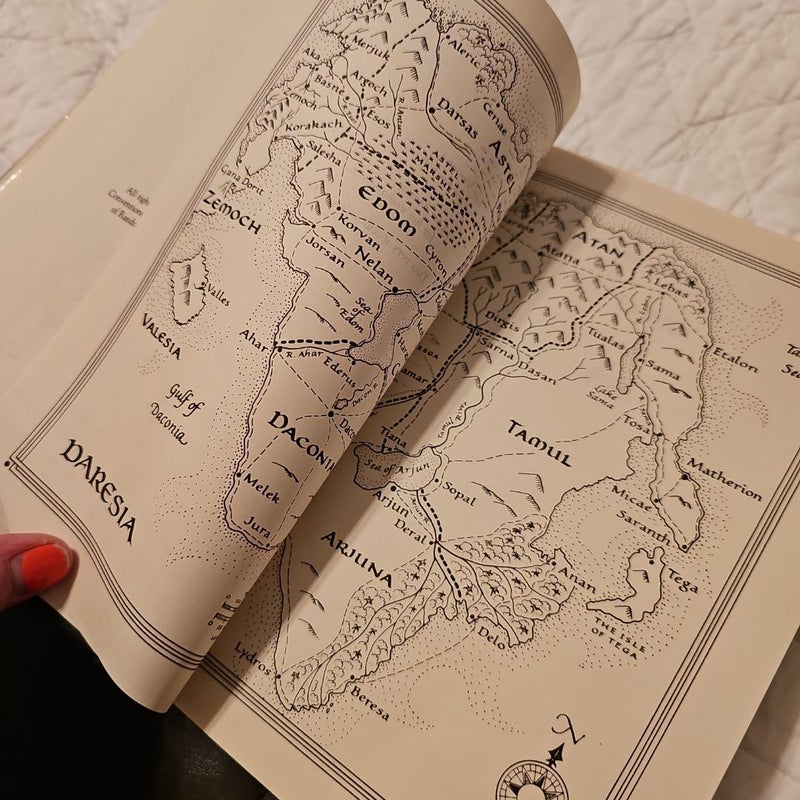 All righ
Convention
of Rando
Merjuk
Aka
Argoch
Basne
Zemoch
Esos
Korakach
Salesha
Gara Dorit
ZEMOCH
Aleric
Cenae
Darsas
ASTEL
ASTEL
MARSHES
EDOM
Korvan
Jorsan
Nelan
Cyron
Sea
of
Edom
Valles
VALESIA
Ahar
R. Ahar
Ederus
Gulf of
Daconia
DACONIA
Melek
Jura
DARESIA
ATAN
Atana
Lebas
Dirgis
Sarna
Dasan
Tualas
Etalon
Sama
Lake
Sama
Tosa
TAMUL
Matherion
Micae
Saranth
Tiana
Sea of Arjun
Sopal
Arjun
Deral
ARJUNA
Anan
Tega
THE ISLE
OF TEGA
Delo
Lydros
Beresa
N